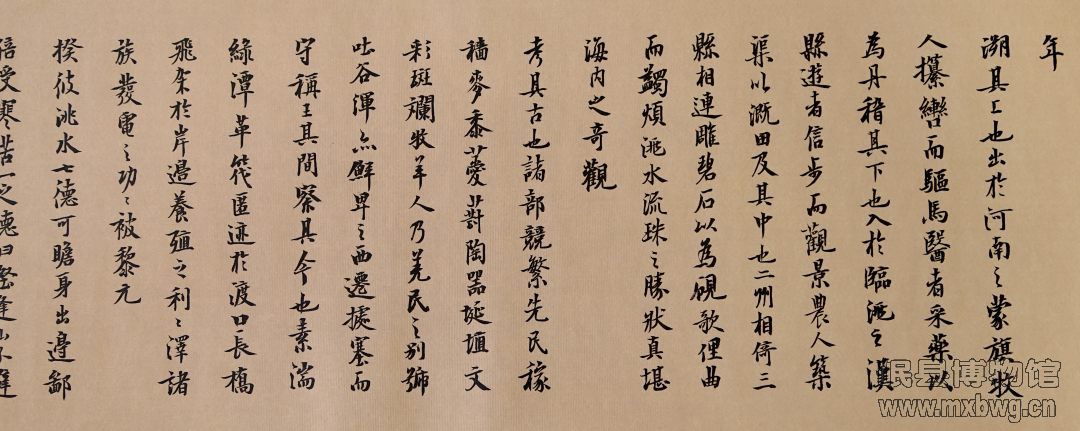 年
溯其上也出於河南之蒙旗牧
人攥轡而驅馬醫者采藥以
為丹稽其下也入於臨洮之漢
縣遊者信步而觀景農人築
渠以溉田及其中也二州相倚三
縣相連雕碧石以為硯歌俚曲
而蠲煩洮水流珠之勝狀真堪
海内之奇觀
考其古也諸部競繁先民稼
穡麥黍蔓葑陶器埏埴文
彩斑斕牧羊人乃羌民之别號
吐谷渾亦鮮卑之西遷據塞而
守稱王其間察其今也素湍
綠潭革筏匿迹於渡口長橋
飛架於岸邊養殖之利利澤諸
族發電之功功被黎元
揆彼洮水七德可瞻身出邊鄙
倍受寒苦一之德曰壑逢山不避
岷县博物馆
www.mxbwg.cn